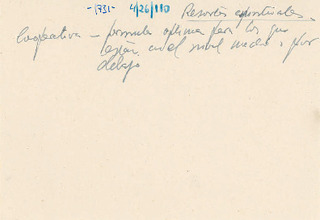 -1731- 4/26/110 Resortes espirituales.
Cooperativa – formula optima para los que
están en el nivel medio o por
debajo